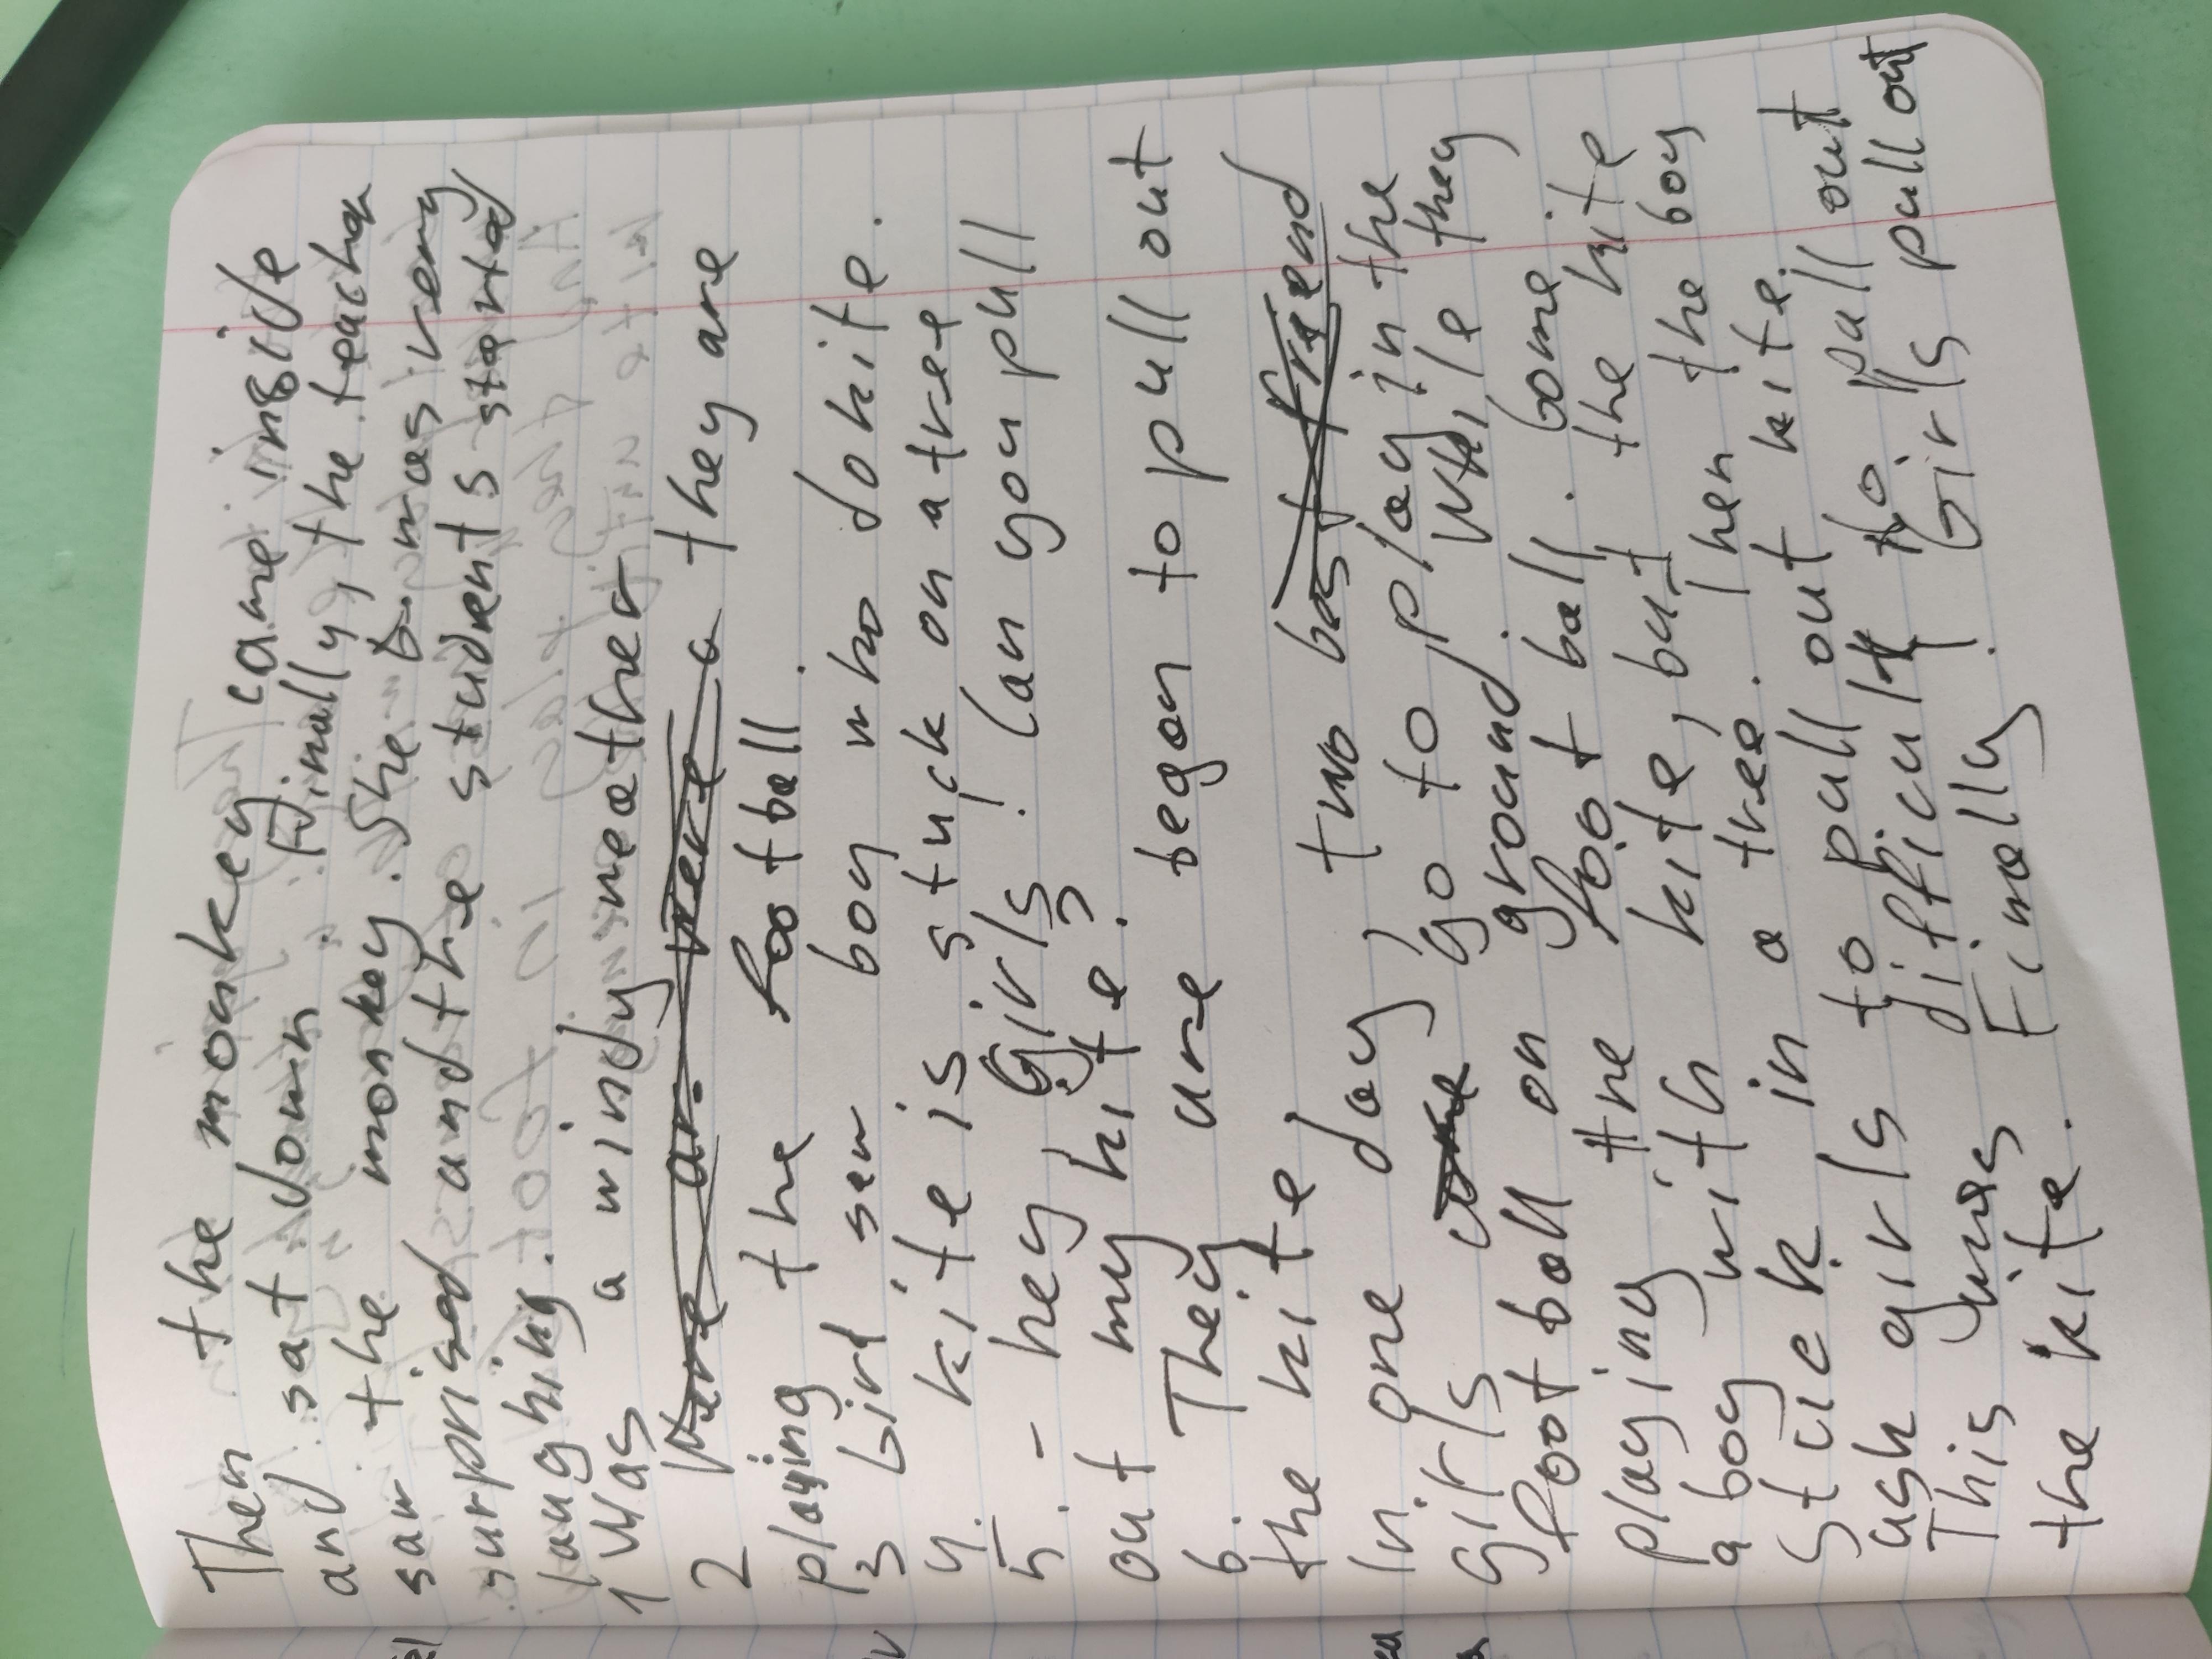 Then the monkey came inside
and sat down. Finally, the teacher
saw the monkey. She was very
surprised and the students started
laughing.
1 Was a windy weather
2 they are
playing the football.
3 Girl saw boy who do kite.
4. kite is stuck on a tree
5. - hey girls! Can you pull
out my kite?
6. They are began to pull out
the kite
In one day, two
girls go to play in the
football on ground. While they
playing the football. Some
a boy with kite, but the kite
stick in a tree. Then the boy
ask girls to pull out kite.
This was difficult to pull out
the kite. Finally. Girls pull out